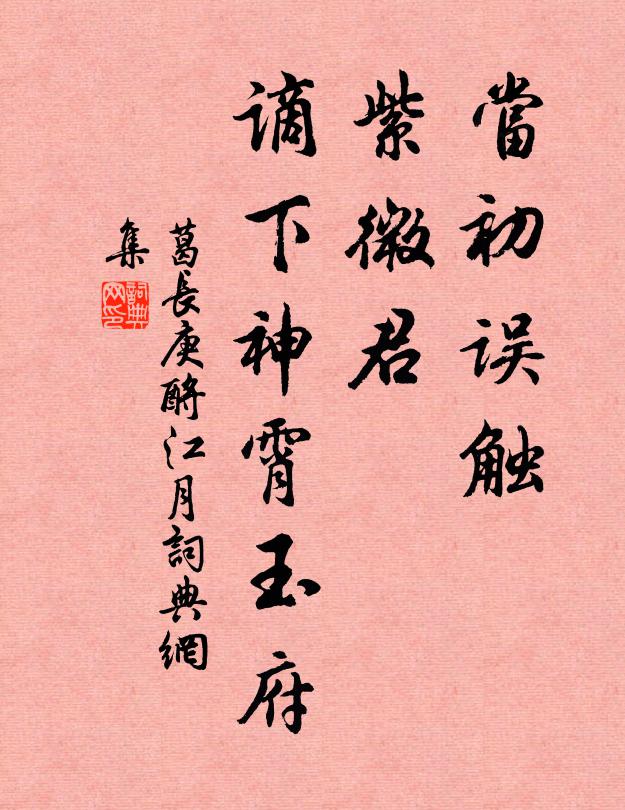 當初误触
紫微君
谪下神霄玉府
葛長庚酹江月詞典網
集
詞典
网印